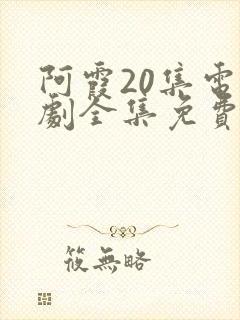 阿霞20集電
劇全集免費
筱無略